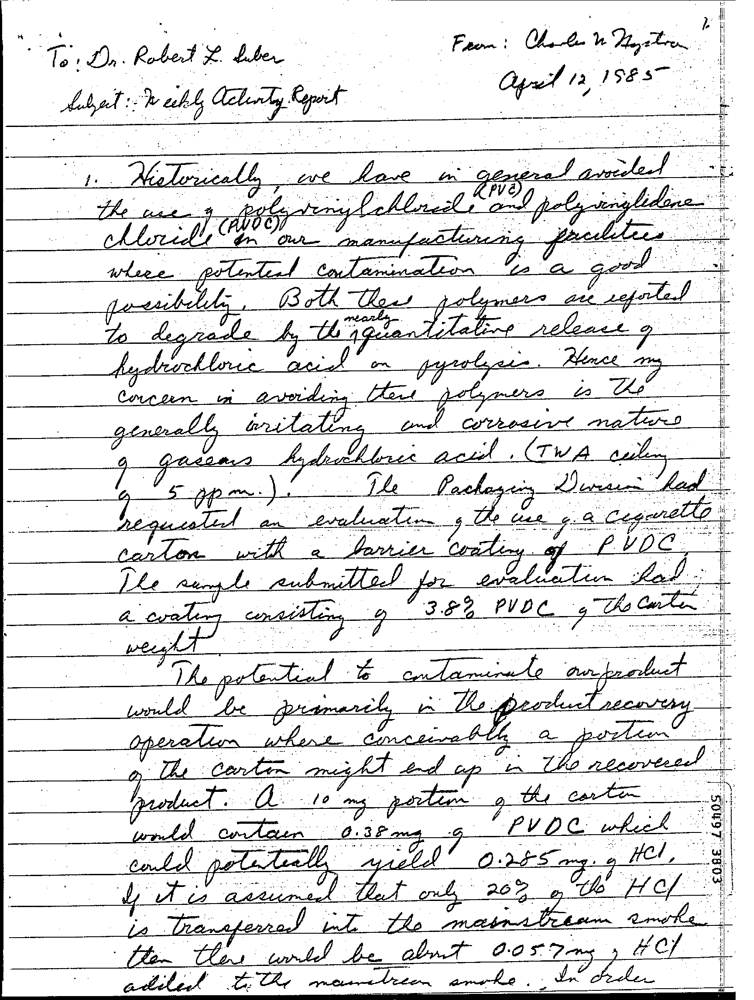 1.
To: Dr. Robert L. Suber
From: Charles N Nystrom
April 12, 1985
Subject: Weekly Activity Report
1. Historically, we have in general avoided
the use of polyvinylchloride (PVC) and polyvinylidene
chloride (PVDC) in our manufacturing facilities
where potential contamination is a good
possibility. Both these polymers are reported
to degrade by the nearly quantitative release of
hydrochloric acid on pyrolysis. Hence my
concern in avoiding these polymers is the
generally irritating and corrosive nature
of gaseous hydrochloric acid. (TWA ceiling
of 5 ppm.). The Packaging Division had
requested an evaluation of the use of a cigarette
carton with a barrier coating of PVDC.
The sample submitted for evaluation had
a coating consisting of 3.8% PVDC of the carton
weight
The potential to contaminate our product
would be primarily in the product recovery
operation where conceivably a portion
of the carton might end up in the recovered
product. A 10 mg portion of the carton
would contain 0.38 mg of PVDC which
could potentially yield 0.285 mg. of HCl.
If it is assumed that only 20% of the HCl
is transferred into the mainstream smoke
then there would be about 0.057 mg of HCl
added to the mainstream smoke. In order
50497 3803